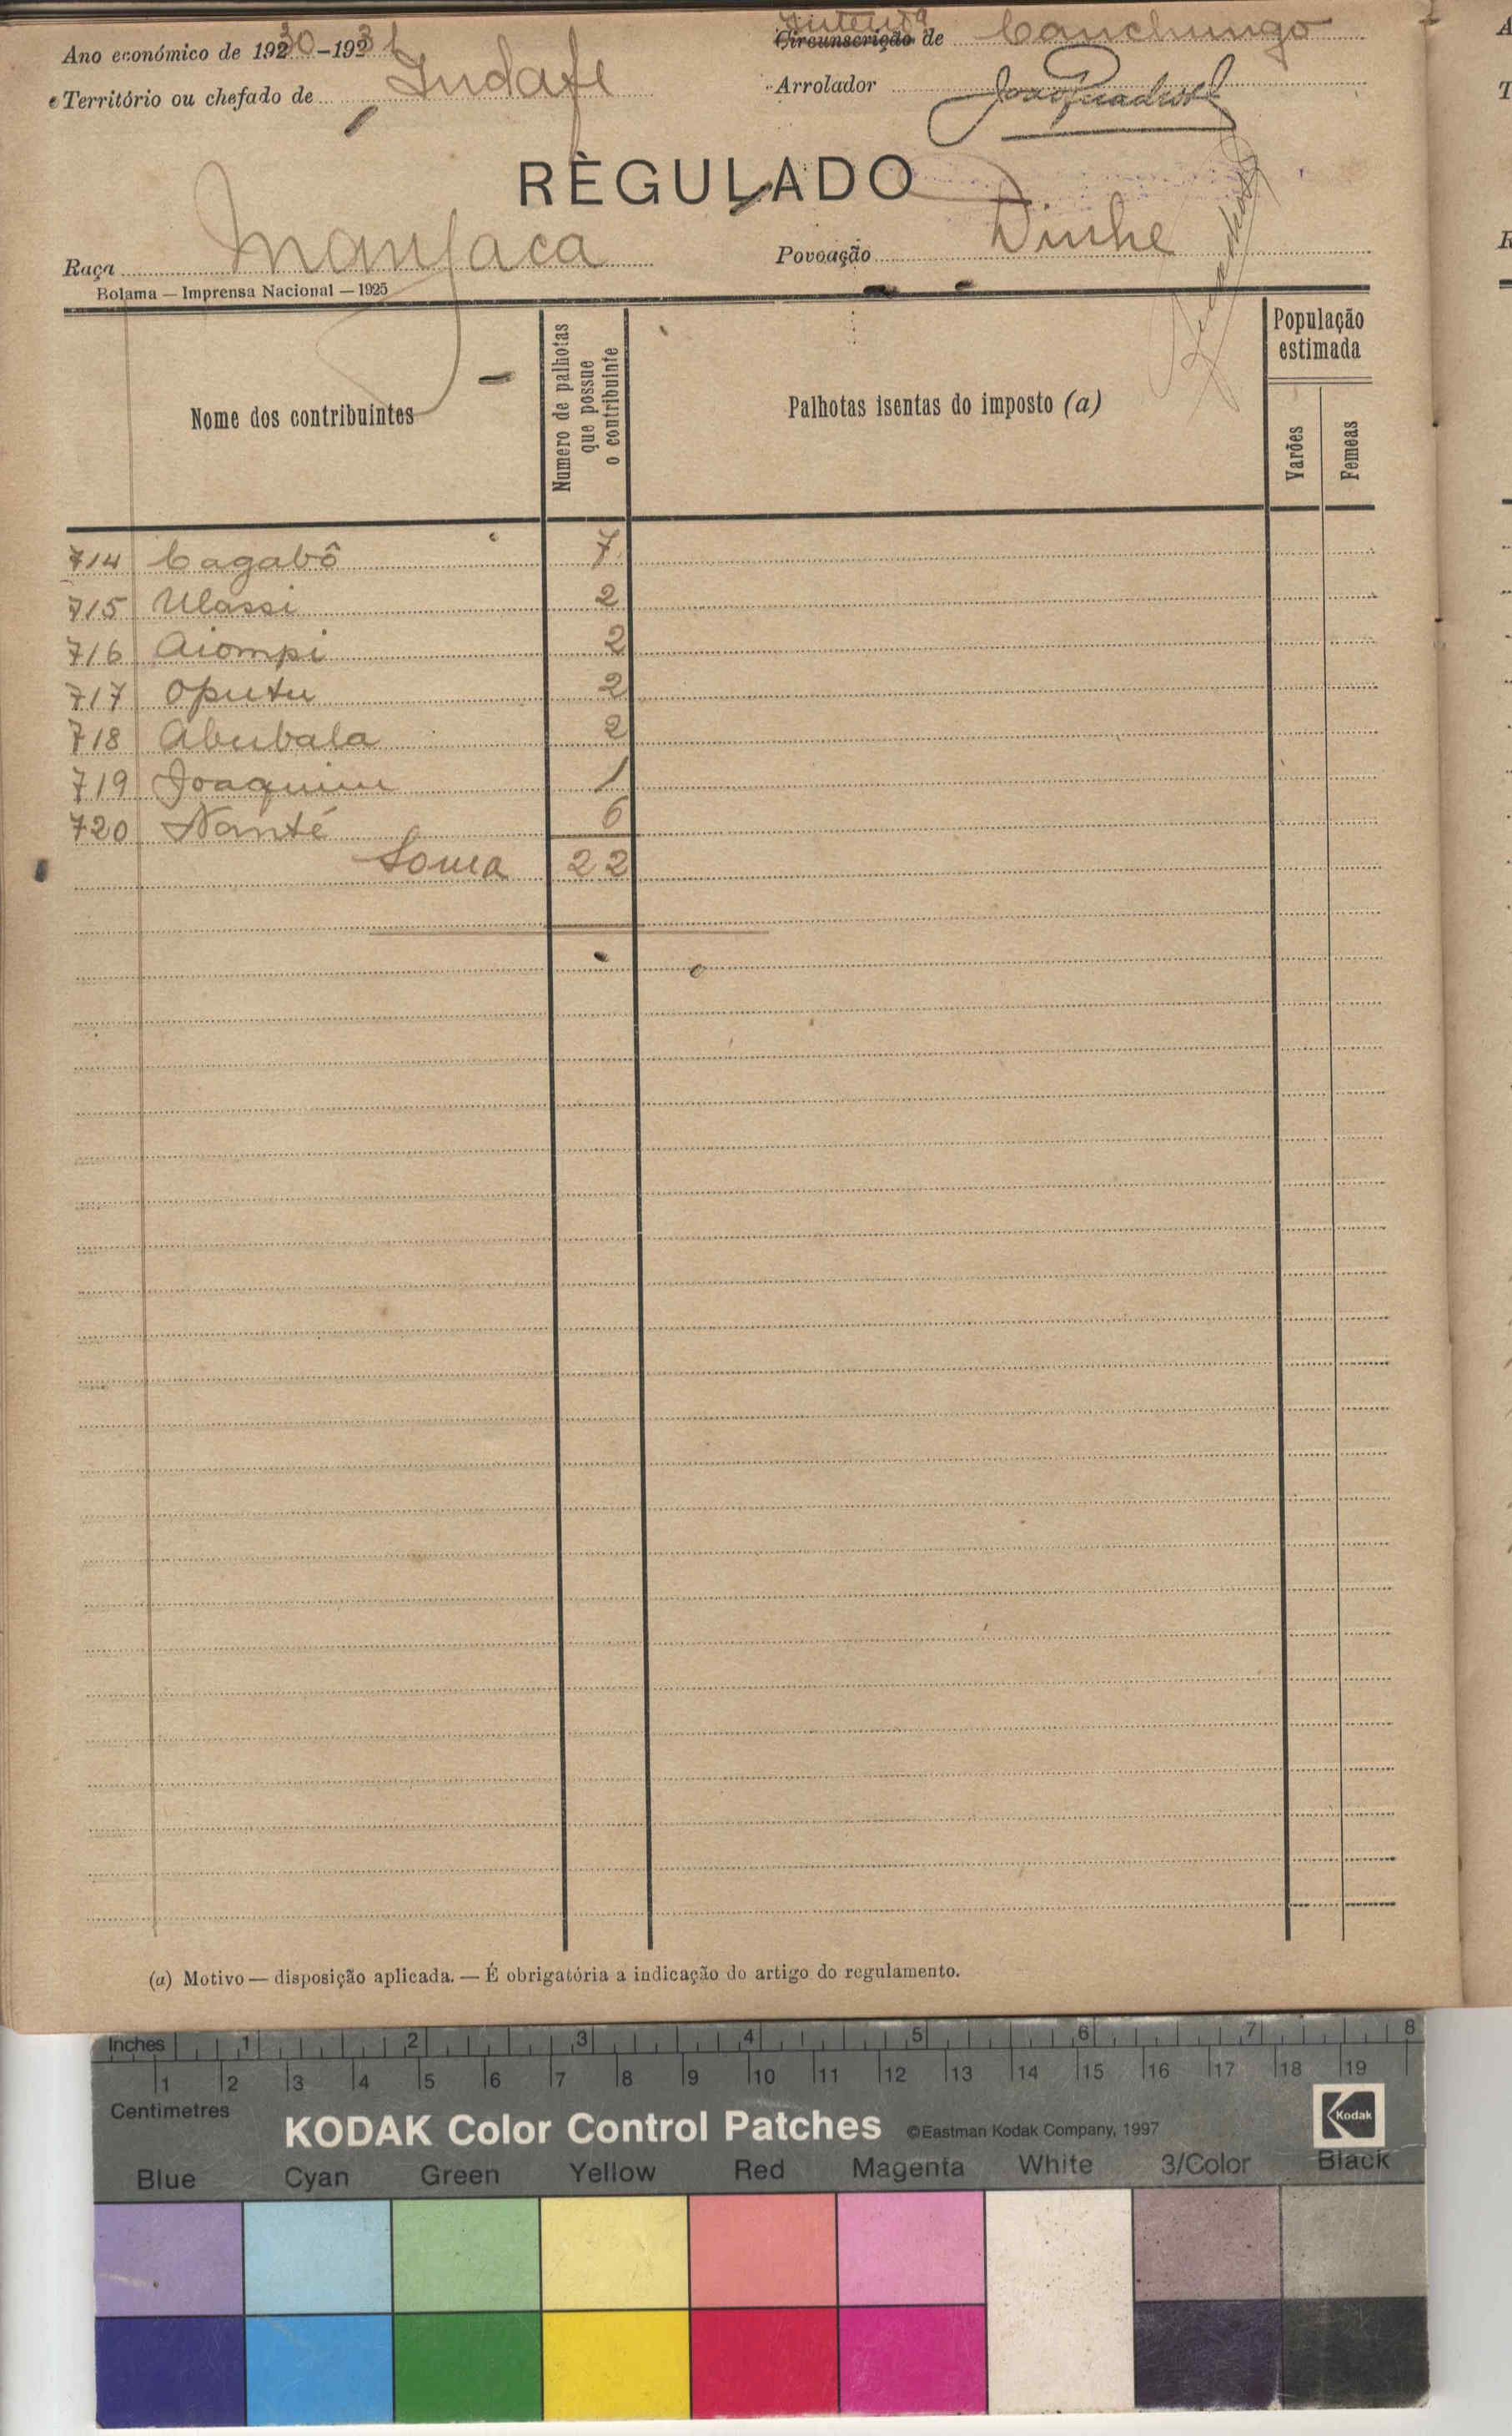 Ano económico de 1930-1931
Intend.ª
Circunscrição de Canchungo
Território ou chefado de Indafe
Arrolador
RÈGULADO
Raça Manjaca
Povoação Dinhe
Bolama — Imprensa Nacional — 1925
Nome dos contribuintes
Numero de palhotas
que possue
o contribuinte
Palhotas isentas do imposto (a)
População
estimada
Varões
Femeas
714 Cagabô 7
715 Ulassi 2
716 Aiompi 2
717 Oputu 2
718 Abubala 2
719 Joaquim 1
720 Nanté 6
Soma 22
(a) Motivo — disposição aplicada. — É obrigatória a indicação do artigo do regulamento.
Inches 1 2 3 4 5 6 7 8
1 2 3 4 5 6 7 8 9 10 11 12 13 14 15 16 17 18 19
Centimetres
KODAK Color Control Patches ©Eastman Kodak Company, 1997
Kodak
Blue Cyan Green Yellow Red Magenta White 3/Color Black